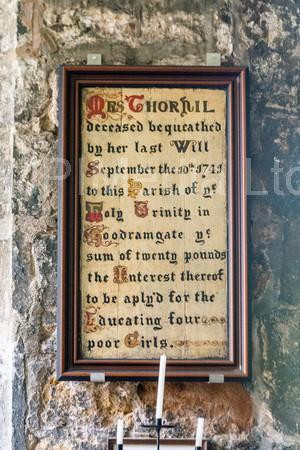 Mrs Thornil
deceased bequeathed
by her last Will
September the 10th 1745
to this Parish of ye
Holy Trinity in
Goodramgate ye
sum of twenty pounds
the Interest thereof
to be aply'd for the
Educating four
poor Girls.